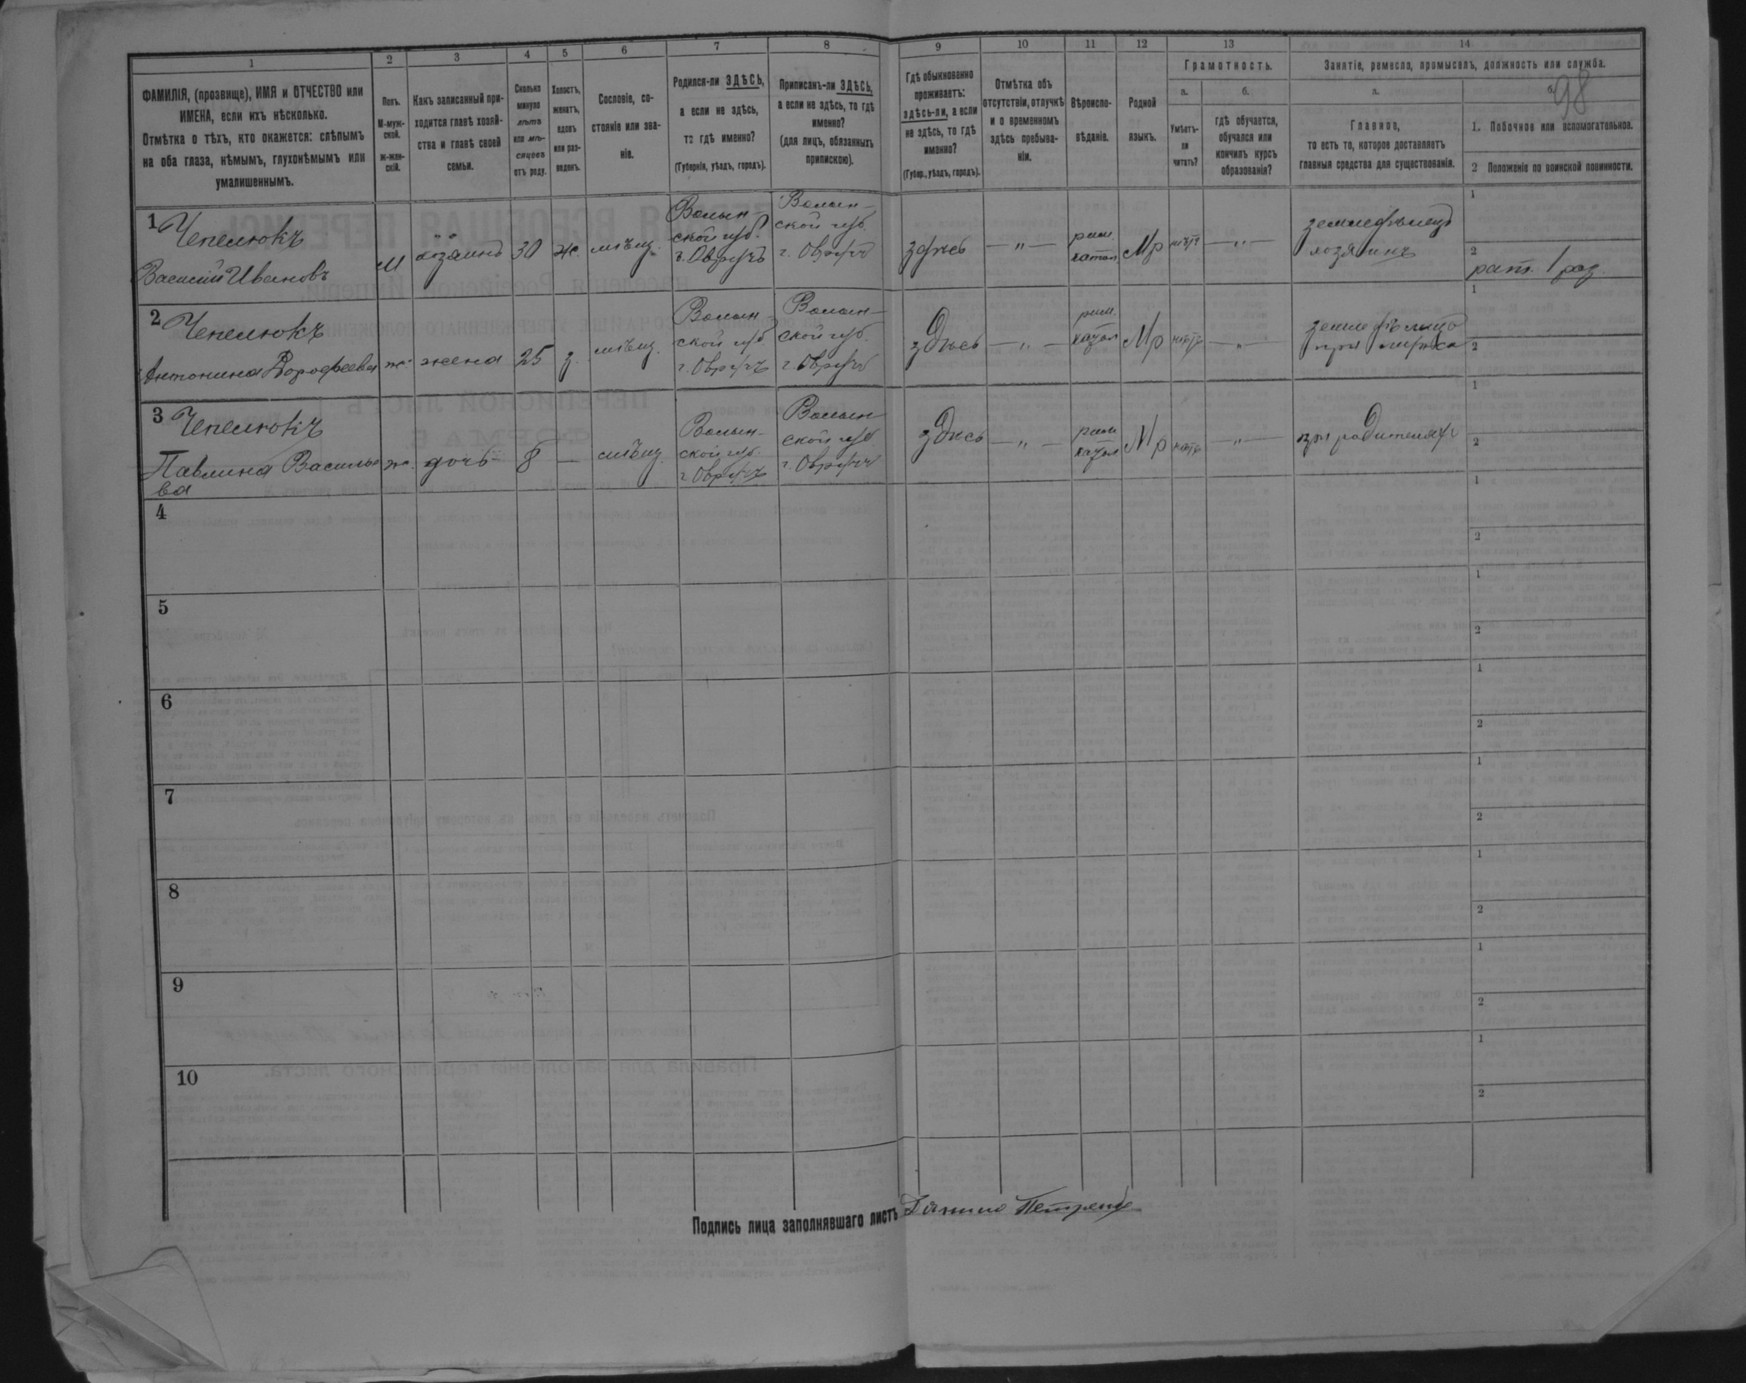 1 2 3 4 5 6 7 8 9 10 11 12 13 14
ФАМИЛІЯ, (прозвище), ИМЯ и ОТЧЕСТВО или
ИМЕНА, если ихъ нѣсколько.
Отмѣтка о тѣхъ, кто окажется: слѣпымъ
на оба глаза, нѣмымъ, глухонѣмымъ или
умалишеннымъ.
Полъ.
М-муж-
ской.
ж-жен-
скій.
Какъ записанный при-
ходится главѣ хозяй-
ства и главѣ своей
семьи.
Сколько
минуло
лѣтъ
или мѣ-
сяцевъ
отъ роду.
Холостъ,
женатъ,
вдовъ
или раз-
веденъ.
Сословіе, со-
стояніе или зва-
ніе.
Родился-ли ЗДѢСЬ,
а если не здѣсь,
то гдѣ именно?
(Губернія, уѣздъ, городъ).
Приписанъ-ли ЗДѢСЬ,
а если не здѣсь, то гдѣ
именно?
(для лицъ, обязанныхъ
припискою).
Гдѣ обыкновенно
проживаетъ:
здѣсь-ли, а если
не здѣсь, то гдѣ
именно?
(Губер., уѣздъ, городъ).
Отмѣтка объ
отсутствіи, отлучкѣ
и о временномъ
здѣсь пребыва-
ніи.
Вѣроиспо-
вѣданіе.
Родной
языкъ.
Грамотность.
а.
Умѣетъ-
ли
читать?
б.
гдѣ обучается,
обучался или
кончилъ курсъ
образованія?
Занятіе, ремесло, промыселъ, должность или служба.
а.
Главное,
то есть то, которое доставляетъ
главныя средства для существованія.
98
1. Побочное или вспомогательное.
2 Положеніе по воинской повинности.
1
Чепелюкъ
Василій Ивановъ
м
хозяинъ
30
ж.
мѣщ.
Волын-
ской губ.
г. Овручъ
Волын-
ской губ.
г. Овручъ
здѣсь
— „ —
рим.
катол
Мр
— „ —
земледѣлецъ
хозяинъ
1
2
рат. 1 раз.
2
Чепелюкъ
Антонина Дорофеева
ж.
жена
25
з.
мѣщ.
Волын-
ской губ
г. Овручъ
Волын-
ской губ.
г. Овручъ
здѣсь
— „ —
рим.
катол
Мр
— „ —
1
2
3
Чепелюкъ
Павлина Василье
ва
ж.
дочь
8
—
мѣщ.
Волын-
ской губ.
г. Овручъ
Волын-
ской губ
г. Овручъ
здѣсь
— „ —
рим
катол
Мр
— „ —
при родителяхъ
1
2
4
1
2
5
1
2
6
1
2
7
1
2
8
1
2
9
1
2
10
1
2
Подпись лица заполнявшаго листъ